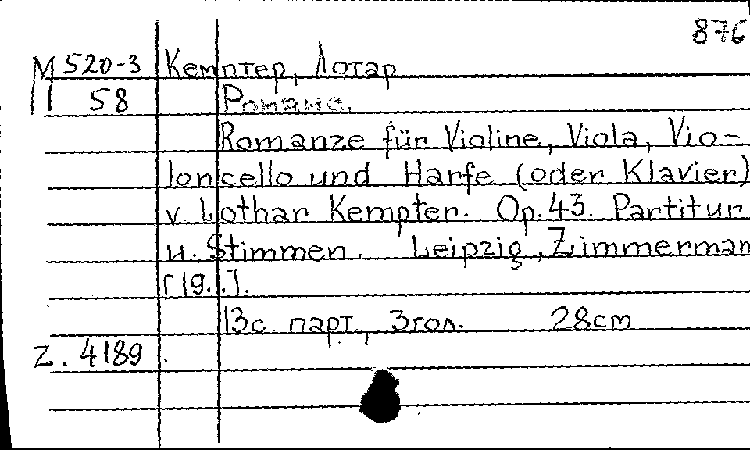 876
М 520-3 Кемптер, Лотар
11 58 Романс.
Romanze für Violine, Viola, Vio-
loncello und Harfe (oder Klavier)
v. Lothar Kempter. Op. 43. Partitur
u. Stimmen. Leipzig, Zimmerman
[19..].
13с. парт., 3гол. 28cm
Z. 4189